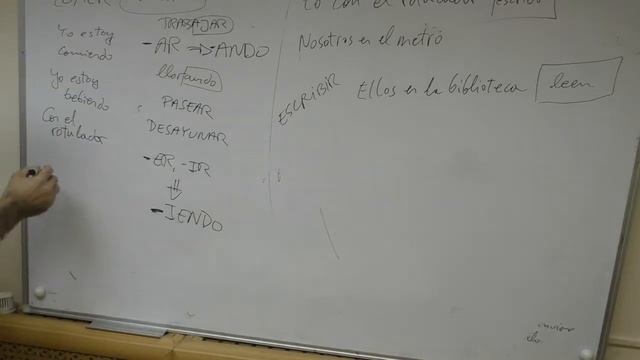 COMER
Yo estoy
comiendo
Yo estoy
bebiendo
Con el
rotulador
TRABAJAR
-AR ⇒ -ANDO
llorando
PASEAR
DESAYUNAR
-ER, -IR
⇓
-IENDO
Yo con el rotulador escribo
Nosotros en el metro
ESCRIBIR
Ellos en la biblioteca leen